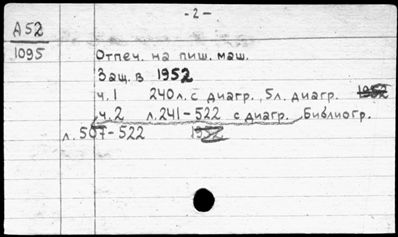 - 2 -
А 52
1095
Отпеч. на пиш. маш.
Защ. в 1952
ч. 1 240 л. с диагр., 5 л. диагр. 1952
ч. 2 л. 241-522 с диагр. Библиогр.
л. 507-522 1952